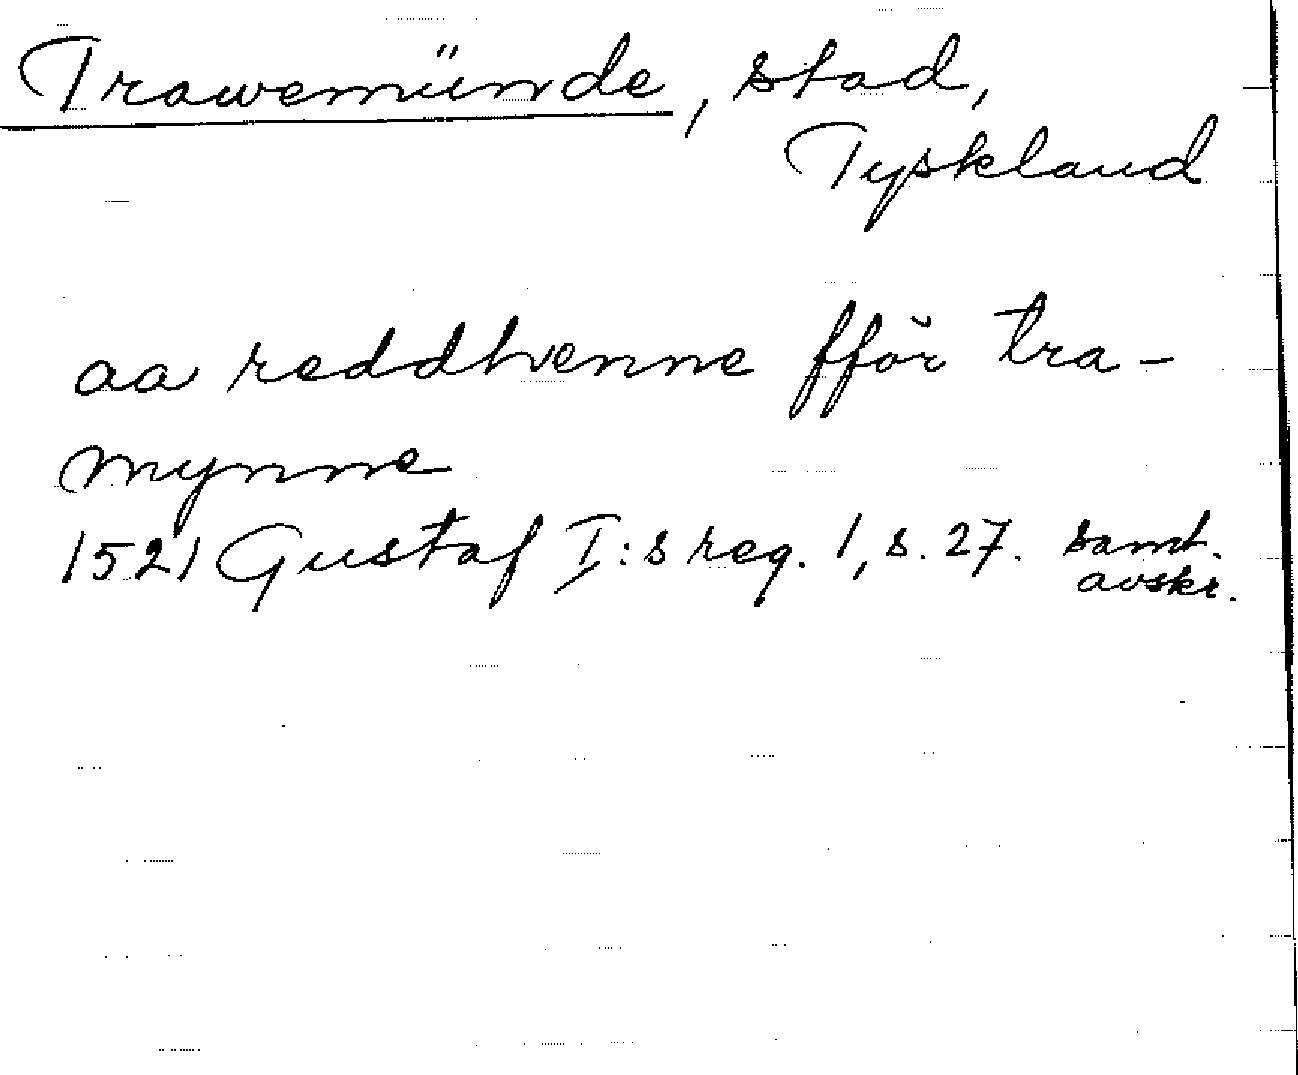 Trawemünde, stad,
Tyskland
aa reddhenne fför tra-
mynne
1521 Gustaf I:s reg. 1, s. 27. samt.
avskr.